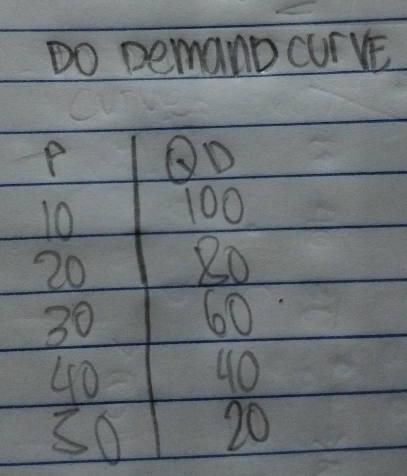 DO DEMAND CURVE
P QD
10 100
20 80
30 60
40 40
50 20